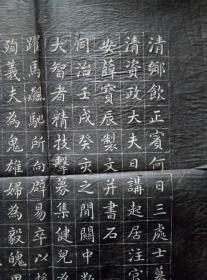 清鄉飲正賓何日三處士墓
清資政大夫日講起居注官
安薛寶辰製文并書石
同治壬戌癸亥之間關中
大智者精技擊募集健兒
躍馬飈馳所向辟易卒以
殉義夫為鬼雄婦為毅魄